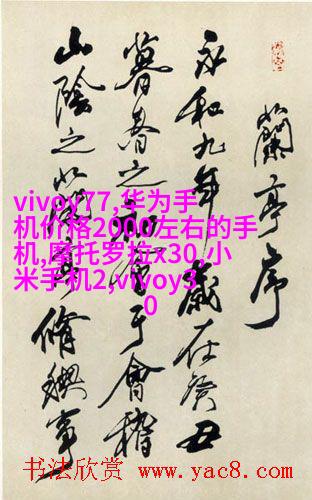 蘭亭序
永和九年歲在癸丑
暮春之初會于會稽
山陰之蘭亭脩禊事
vivoy77,华为手
机价格2000左右的手
机,摩托罗拉x30,小
米手机2,vivoy3
0
书法欣赏 www.yac8.com